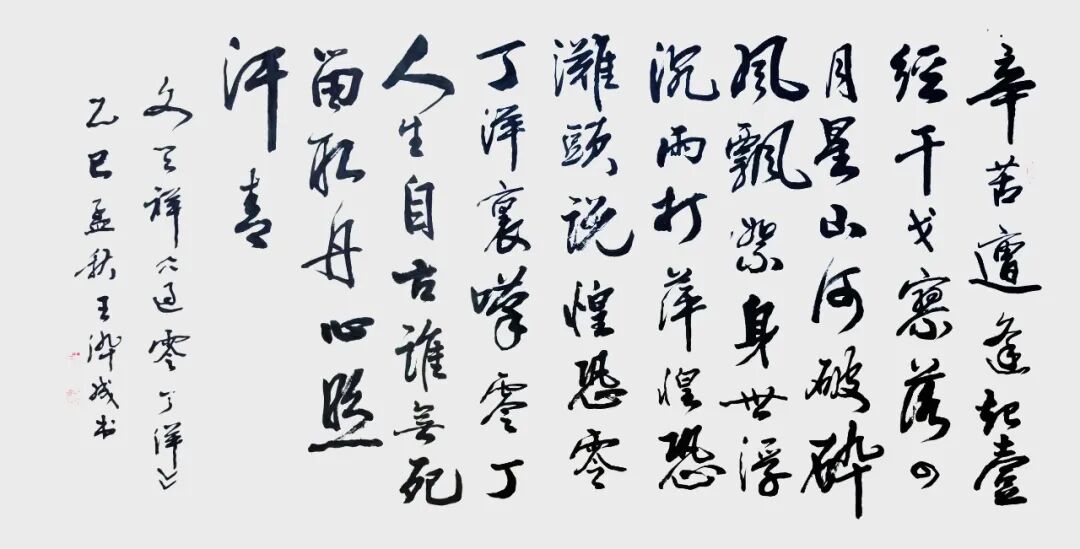 辛苦遭逢起壹
經干戈寥落四
周星山河破碎
風飄絮身世浮
沉雨打萍惶恐
灘頭説惶恐零
丁洋裏嘆零丁
人生自古誰無死
留取丹心照
汗青
文天祥《过零丁洋》
乙巳孟秋王成书